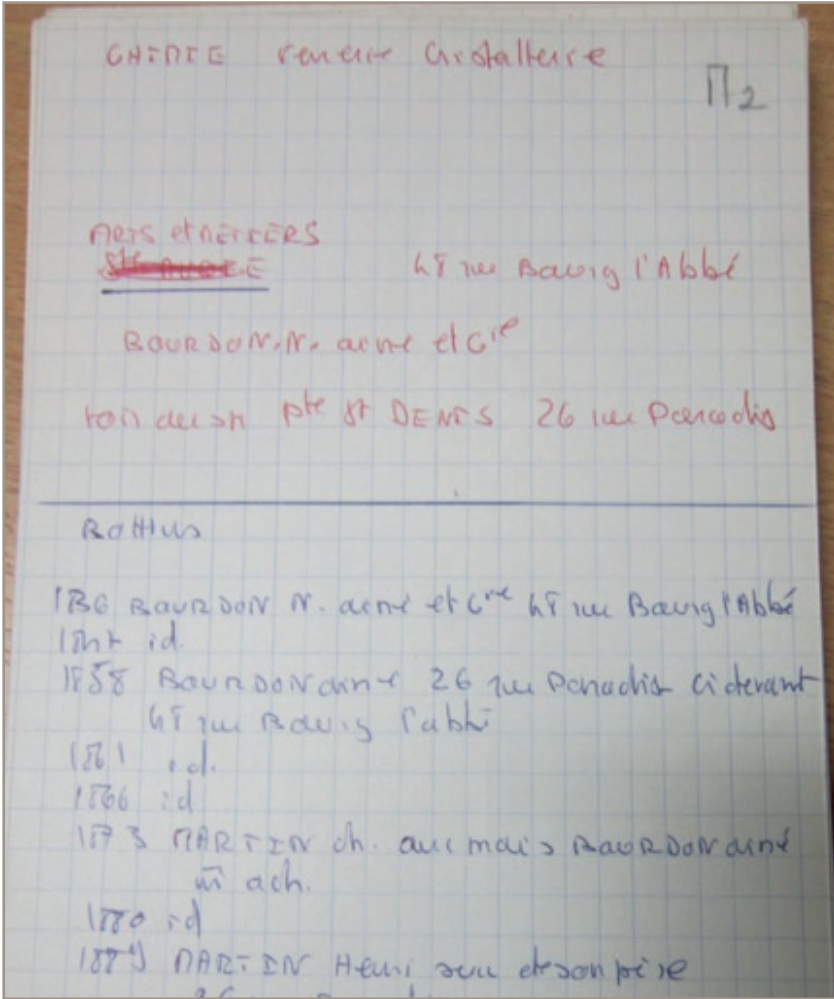 CHIMIE verrerie Cristallerie
M2
ARTS et METIERS
48 rue Bourg l'Abbé
BOURDON. N. aîné et Cie
pte St DENIS 26 rue Paradis
Bottins
BOURDON N. aîné et Cie 48 rue Bourg l'Abbé
id.
1858 BOURDON aîné 26 rue Paradis ci devant
48 rue Bourg l'abbé
1861 id.
1866 id
1873 MARTIN ch. anc mais BOURDON aîné
m ach.
1880 id
1889 MARTIN Henri succ de son père
26